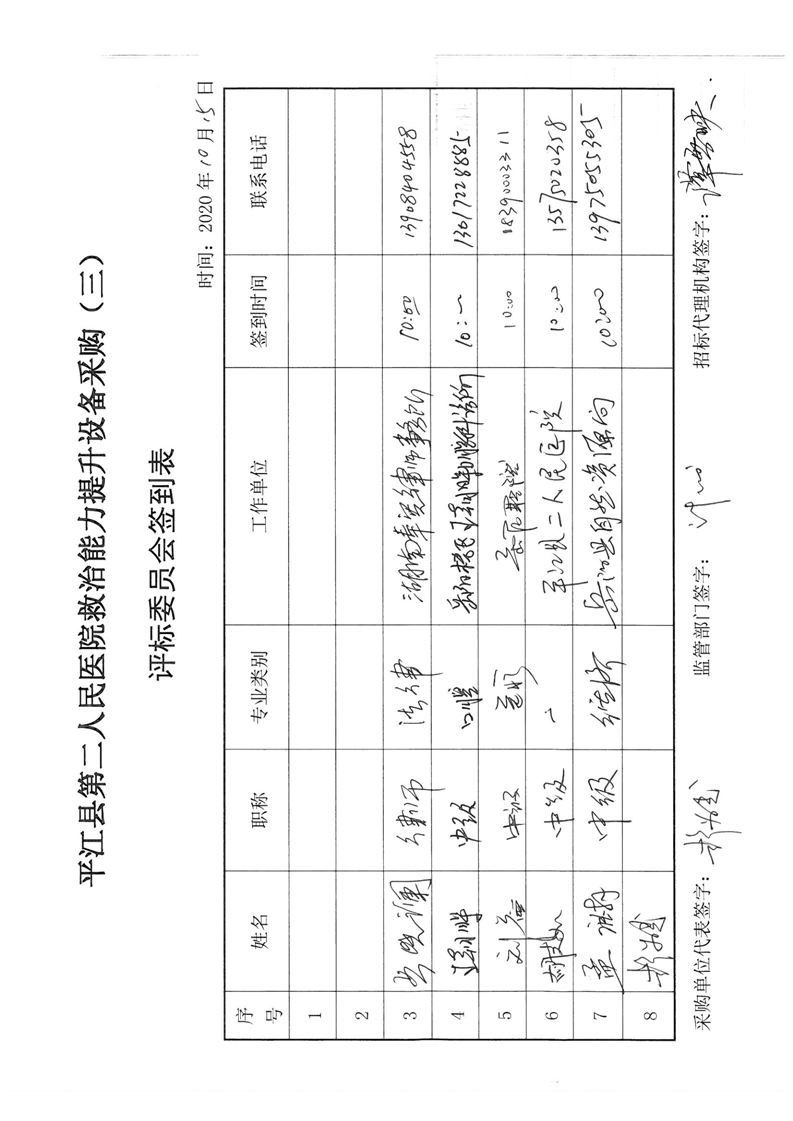 平江县第二人民医院救治能力提升设备采购（三）
评标委员会签到表
时间：2020年10月15日
序号 姓名 职称 专业类别 工作单位 签到时间 联系电话
1
2
3 律师 法律 湖南秦湘律师事务所 10:00 13908404558
4 中级 口腔 10:00 13617228885
5 中级 10:00 18390003311
6 中级 平江县二人民医院 10:00 13575020358
7 中级 经济 岳阳县自然资源局 10:00 13975055305
8
采购单位代表签字： 监管部门签字： 招标代理机构签字：